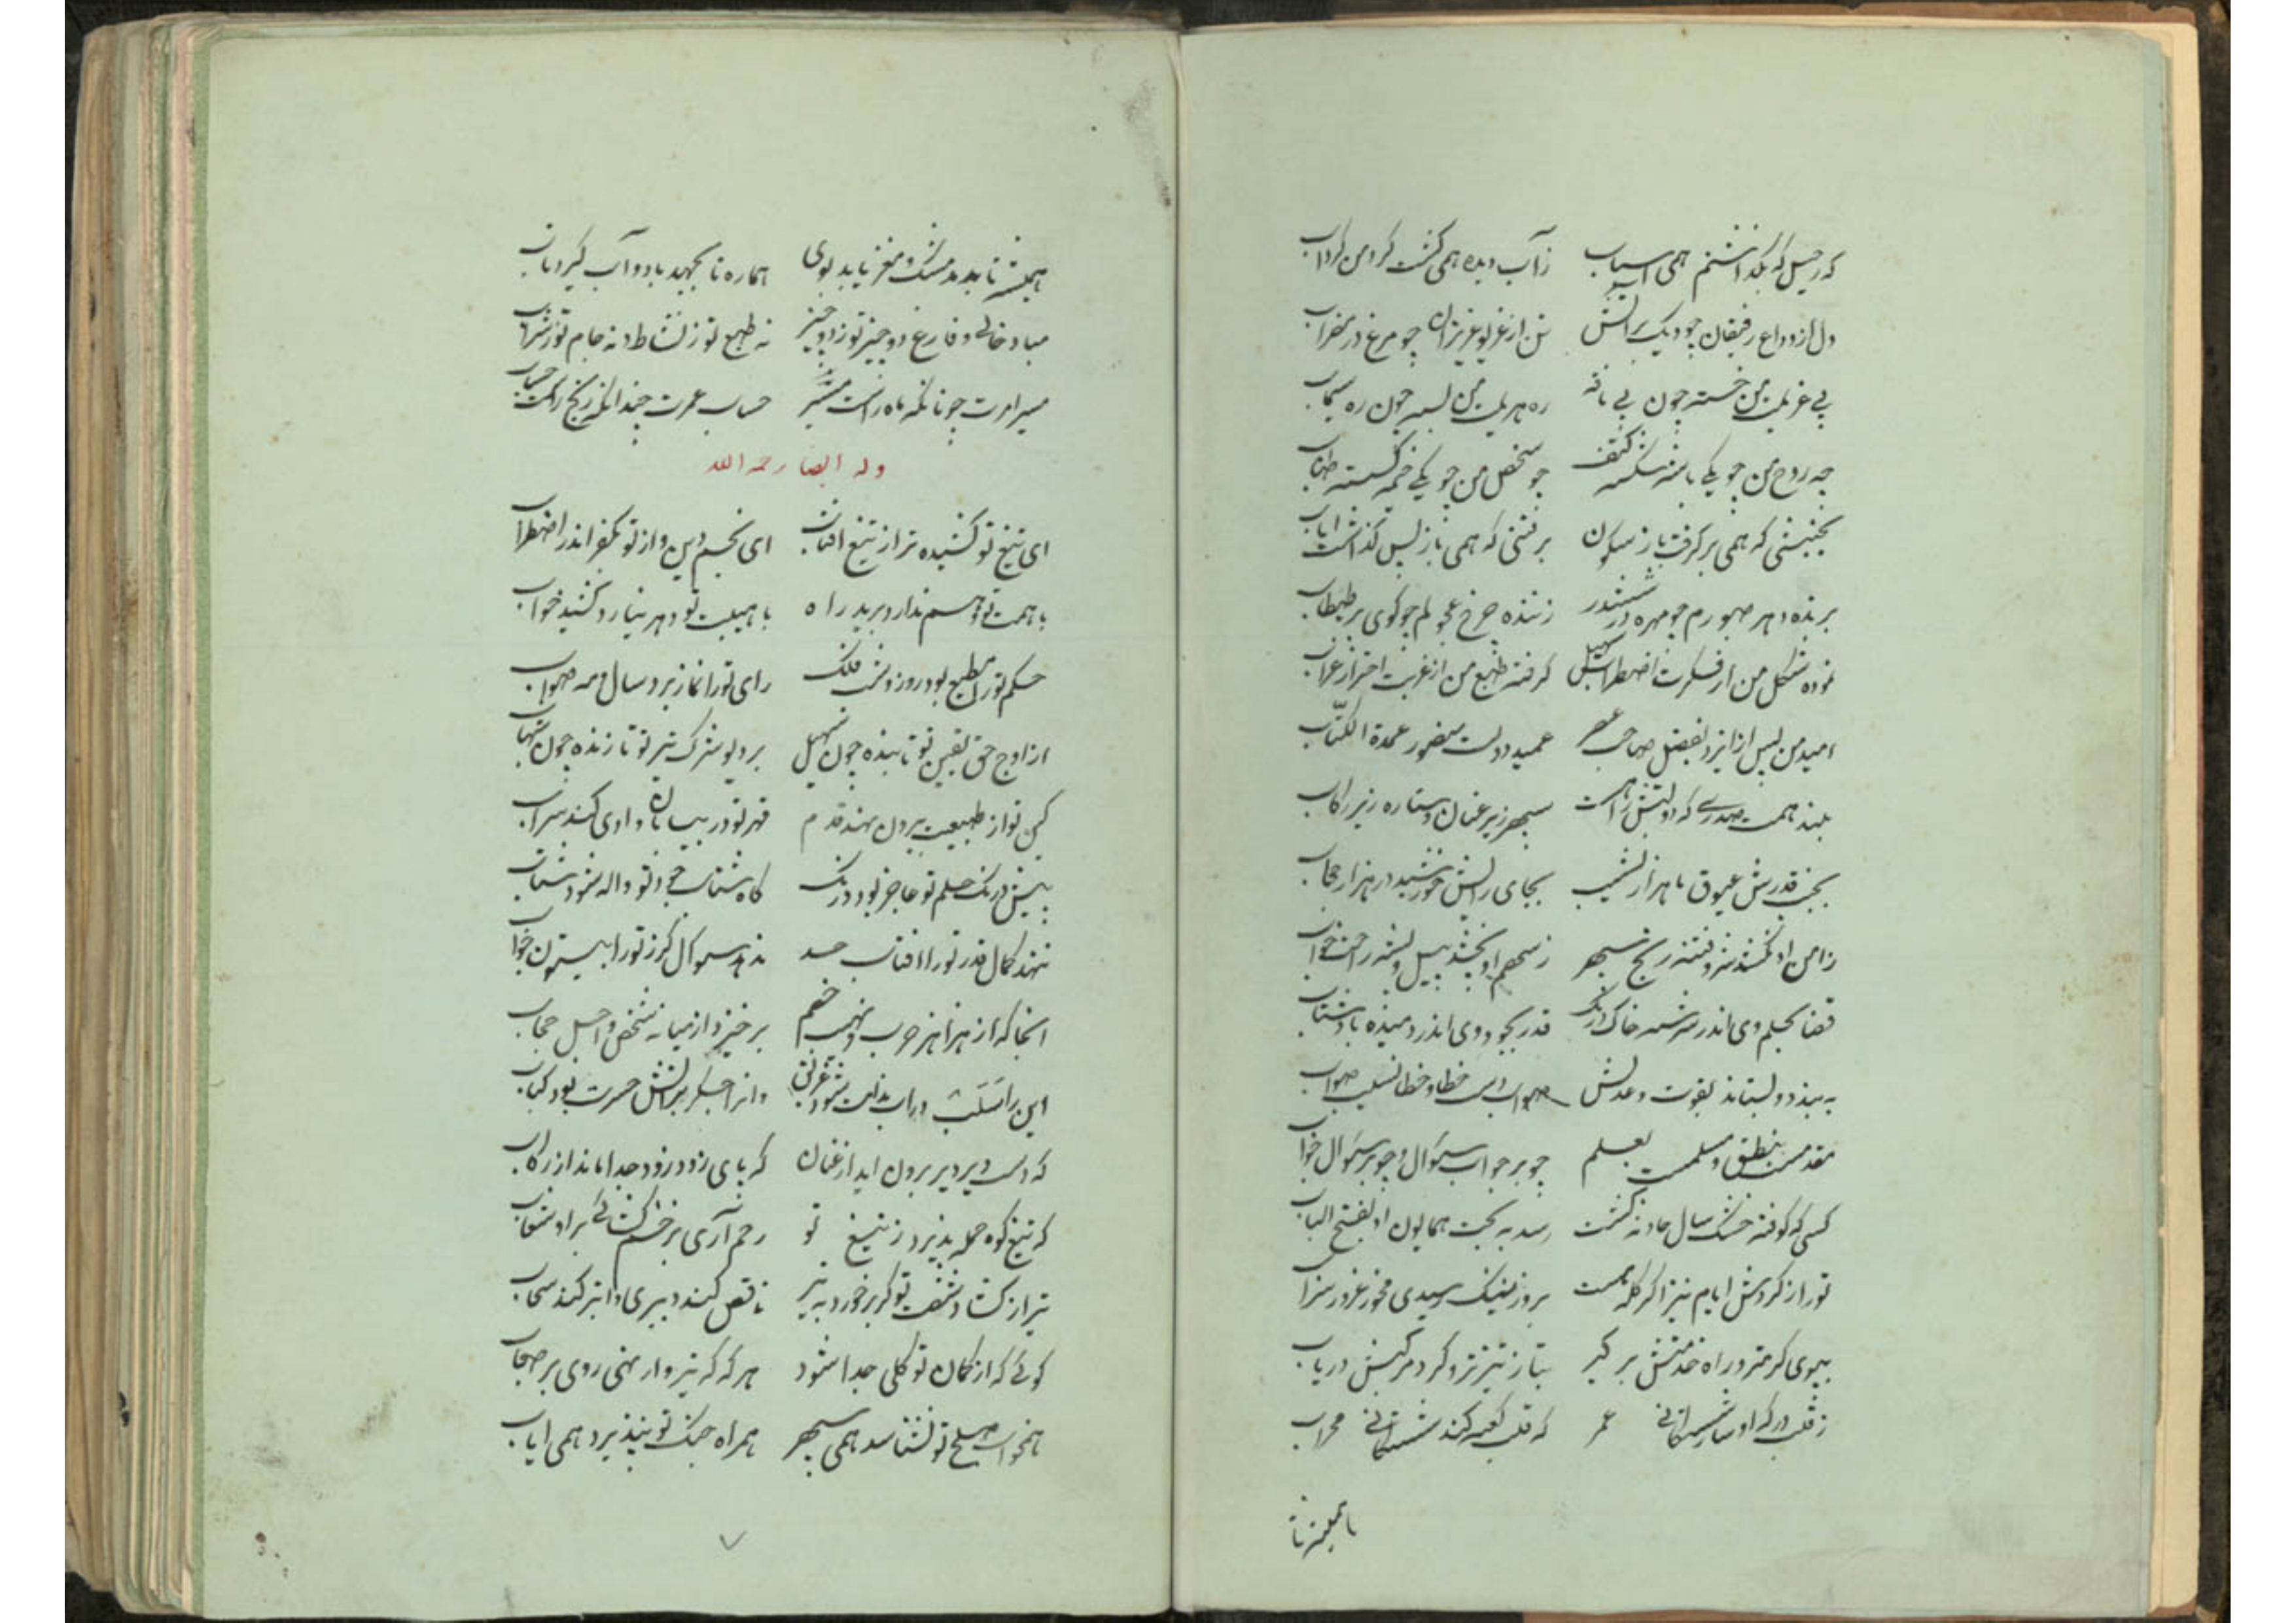 که رحیل که بگذاشتم همی اسباب ز آب دیده همی گشت گرد من گرداب
دل از وداع رفیقان چو دیک بر آتش تن از غریو عزیزان چو مرغ در مضراب
پی غریب من خسته چون پی ناقه ره مهیب من بسته چون ره سیماب
چه روح من چو یکی باشه شکسته کتف چو شخص من چو یکی خیمه گسسته طناب
بجنبشی که همی برگرفت باز سکون برفتنی که همی باز پس گذاشت ایاب
برنده دهر صبورم چو مهره در ششدر زننده چرخ عجولم چو گوی بر طبطاب
نموده شکل من از فکرت اضطراب گرفته طبع من از غربت احتراز غراب
امید من پس از ایزد بفضل صاحب عصر عمید دولت منصور عمدة الکتّاب
بلند همت صدری که دولتش راهست سپهر زیر عنان و ستاره زیر رکاب
بجنب قدرش عیوق با هزار نشیب بجای رایش خورشید در هزار حجاب
زامن او نکشد شور و فتنه رنج سهر ز سهم او نچشد پیل و پشه راحت خواب
قضا بحلم وی اندر سرشته خاک درنگ قدر بجود وی اندر دمیده باد شتاب
ببیند و بستاند بقوت و عدلش صواب دست خطا و خطا نسیب صواب
مقدمست بنطق و مسلمست بعلم چو بر جواب سؤال و چو بر سؤال جواب
کسی که کوفته خشک سال حادثه گشت رسد به بخت همایون او بفتح الباب
تو را ز گردش ایام نیز اگر گله هست بروز نیک رسیدی مخور غرور سراب
ببوی گرمتر و راه خدمتش بر گیر بتاز تیزتر و گرد مرکبش دریاب
ز قلب درگه او ساز شستگانی عمر که قلب کعبه کند شستگانی محراب
همیشه تا
همیشه تا بدمد مشک و مغز یابد بوی هماره تا بجهد باد و آب گیرد تاب
مباد خالی و فارغ دو چیز تو ز دو چیز نه طبع تو ز نشاط و نه جام تو ز شراب
مسیر امرت چونانکه ماه راست مسیر حساب عمرت چندانکه رنج راست حساب
وله ایضا رحمه الله
ای تیغ تو کشیده تر از تیغ آفتاب ای نجم دین و از تو بکفر اندر اضطراب
با همت تو وهم ندارد برید راه با هیبت تو دهر نیارد کشید خواب
حکم تو را مطیع بود روز و شب فلک رای تو را نماز برد سال و مه صواب
از اوج حق یقین تو تابنده چون سهیل بر دیو شرک تیر تو تازنده چون شهاب
کین تو از طبیعت بیرون نهد قدم قهر تو در بیابان وادی کند سراب
پیش درنگ حلم تو عاجز بود درنگ گاه شتاب جود تو واله شود شتاب
ننهد کمال قدر تو را آفتاب حد ندهد سؤال گرز تو را بیستون جواب
آنجا که از هزاهز حرب و نهیب خصم برخیزد از میانه شخص و اجل حجاب
این را سَلَبْ در آب بدات شود غریق وانرا جگر بر آتش حسرت بود کباب
که دست دیر دیر برون آید از عنان که پای زود زود جدا ماند از رکاب
که تیغ کوه حمله پذیرد ز تیغ تو رحم آری بر خشم گشائی بر او شعاب
تیر از گشاد شفت تو گر برخورد به تیر ناقص کند دبیری و ابتر کند سحاب
گوئی که از کمان تو کلی جدا شود هر که که تیر وار نهی روی بر صحاب
همخواب صلح تو نشناسد همی سهر همراه جنگ تو نپذیرد همی ایاب
۷